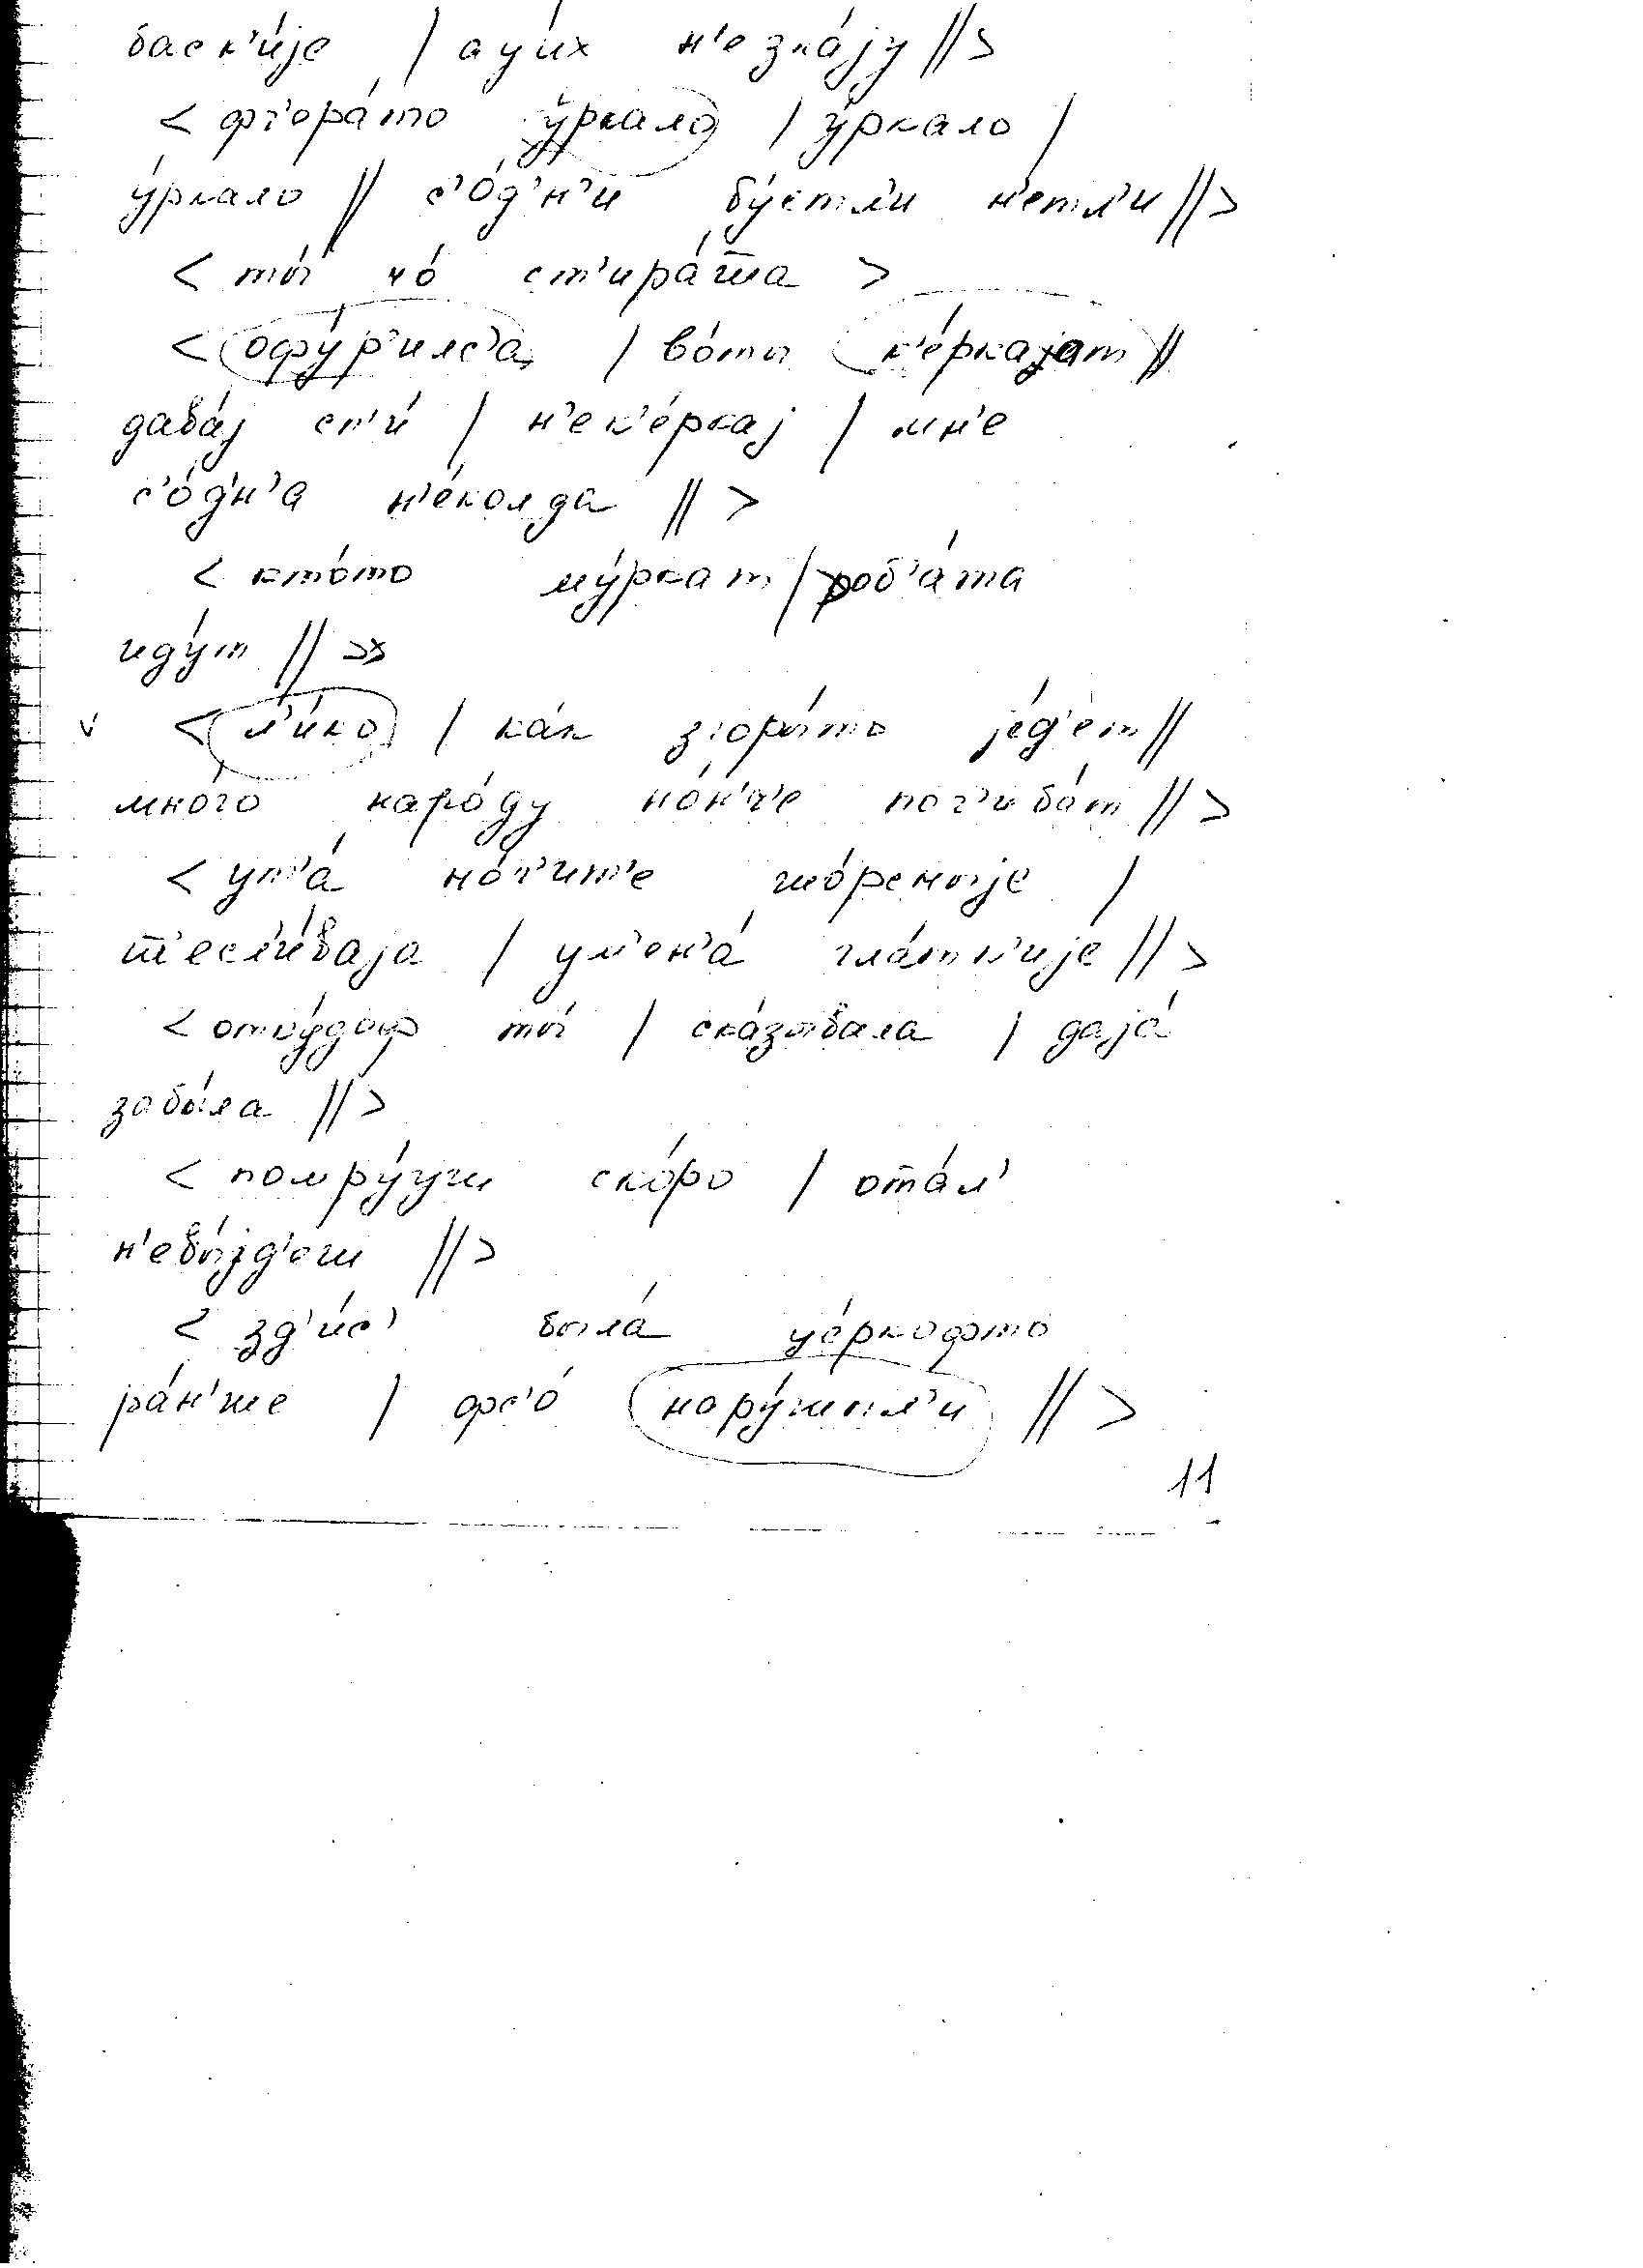 баск'и́jе | ау́их н'езна́jу ||>
< фч'ора́то у́ркало | у́ркало |
у́ркало || с'о́д'н'и бу́етл'и н'етл'и ||>
< ты́ чо́ ст'ира́т̅а >
< офу́р'илс'а | во́ты к'е́ркаjат ||
дава́j сп'и́ | н'ек'е́ркаj | мн'е
с'о́д'н'а н'е́колда || >
< кто́то му́ркат | роб'а́та
иду́т || >
< л'и́ко | ка́к зːоры́то jе́д'ет ||
мно́го наро́ду но́н'ч'е пог'иба́т ||>
< ут'а́ но́г'ит'е шо́роныjе |
т̅'есл'и́ваjа | ум'ен'а́ гла́тк'иjе ||>
< отку́даф ты́ | ска́зывала | даjа́
забы́ла ||>
< помру́уш ско́ро | от̅а́л'
н'евы́jд'ош ||>
< зд'и́с' была́ це́ркофто
ра́н'ше | фс'о́ нару́шыл'и ||>
11